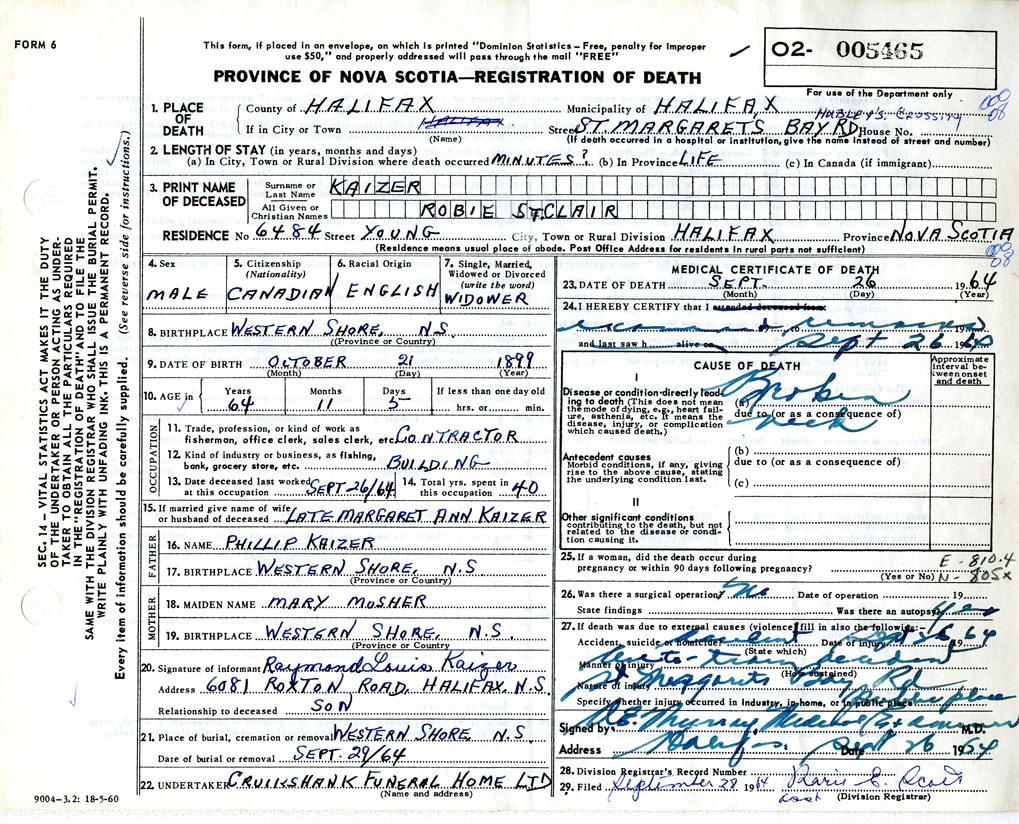 FORM 6
This form, if placed in an envelope, on which is printed "Dominion Statistics – Free, penalty for improper
use $50," and properly addressed will pass through the mail "FREE"
02- 005465
PROVINCE OF NOVA SCOTIA—REGISTRATION OF DEATH
For use of the Department only
1. PLACE OF DEATH
County of HALIFAX Municipality of HALIFAX
HUBLEY'S Crossing
If in City or Town HALIFAX (Name) Street ST. MARGARETS BAY RD House No.
(If death occurred in a hospital or institution, give the name instead of street and number)
2. LENGTH OF STAY (in years, months and days)
(a) In City, Town or Rural Division where death occurred MINUTES? (b) In Province LIFE (c) In Canada (if immigrant)
3. PRINT NAME OF DECEASED
Surname or Last Name KAIZER
All Given or Christian Names ROBIE ST. CLAIR
RESIDENCE No 6484 Street YOUNG City, Town or Rural Division HALIFAX Province NOVA SCOTIA
(Residence means usual place of abode. Post Office Address for residents in rural parts not sufficient)
4. Sex MALE
5. Citizenship (Nationality) CANADIAN
6. Racial Origin ENGLISH
7. Single, Married, Widowed or Divorced (write the word) WIDOWER
8. BIRTHPLACE WESTERN SHORE, N.S.
(Province or Country)
9. DATE OF BIRTH OCTOBER 21 1899
(Month) (Day) (Year)
10. AGE in Years 64 Months 11 Days 5 If less than one day old hrs. or min.
OCCUPATION
11. Trade, profession, or kind of work as
fisherman, office clerk, sales clerk, etc. CONTRACTOR
12. Kind of industry or business, as fishing,
bank, grocery store, etc. BUILDING
13. Date deceased last worked at this occupation SEPT 26/64
14. Total yrs. spent in this occupation 40
15. If married give name of wife
or husband of deceased LATE MARGARET ANN KAIZER
FATHER
16. NAME PHILLIP KAIZER
17. BIRTHPLACE WESTERN SHORE, N.S.
(Province or Country)
MOTHER
18. MAIDEN NAME MARY MOSHER
19. BIRTHPLACE WESTERN SHORE, N.S.
(Province or Country)
20. Signature of informant Raymond Louis Kaizer
Address 6081 ROXTON ROAD, HALIFAX, N.S.
Relationship to deceased SON
21. Place of burial, cremation or removal WESTERN SHORE N.S.
Date of burial or removal SEPT. 29/64
22. UNDERTAKER CRUIKSHANK FUNERAL HOME LTD
(Name and address)
9004–3.2: 18-5-60
MEDICAL CERTIFICATE OF DEATH
23. DATE OF DEATH SEPT. 26 1964
(Month) (Day) (Year)
24. I HEREBY CERTIFY that I attended deceased from
examined remains 19
and last saw h alive on Sept 26 1964
CAUSE OF DEATH
Approximate interval between onset and death
I
Disease or condition directly leading to death (This does not mean the mode of dying, e.g., heart failure, asthenia, etc. It means the disease, injury, or complication which caused death.)
(a) Broken neck
due to (or as a consequence of)
Antecedent causes
Morbid conditions, if any, giving rise to the above cause, stating the underlying condition last.
(b)
due to (or as a consequence of)
(c)
II
Other significant conditions
contributing to the death, but not related to the disease or condition causing it.
25. If a woman, did the death occur during
pregnancy or within 90 days following pregnancy?
(Yes or No)
E - 810.4
N - 805x
26. Was there a surgical operation? No Date of operation 19
State findings Was there an autopsy? yes
27. If death was due to external causes (violence) fill in also the following:–
Accident, suicide or homicide accident Date of injury Sept 26 1964
(State which)
Manner of injury Auto-train accident
(How sustained)
Nature of injury St Margarets Bay Rd
Specify whether injury occurred in industry, in home, or in public place Public place
Signed by Murray Medical Examiner M.D.
Address Halifax Date Sept 26 1964
28. Division Registrar's Record Number
29. Filed September 28 1964
(Division Registrar)
SEC. 14 – VITAL STATISTICS ACT MAKES IT THE DUTY
OF THE UNDERTAKER OR PERSON ACTING AS UNDER-
TAKER TO OBTAIN ALL THE PARTICULARS REQUIRED
IN THE "REGISTRATION OF DEATH" AND TO FILE THE
SAME WITH THE DIVISION REGISTRAR WHO SHALL ISSUE THE BURIAL PERMIT.
WRITE PLAINLY WITH UNFADING INK. THIS IS A PERMANENT RECORD.
Every item of information should be carefully supplied. (See reverse side for instructions.)